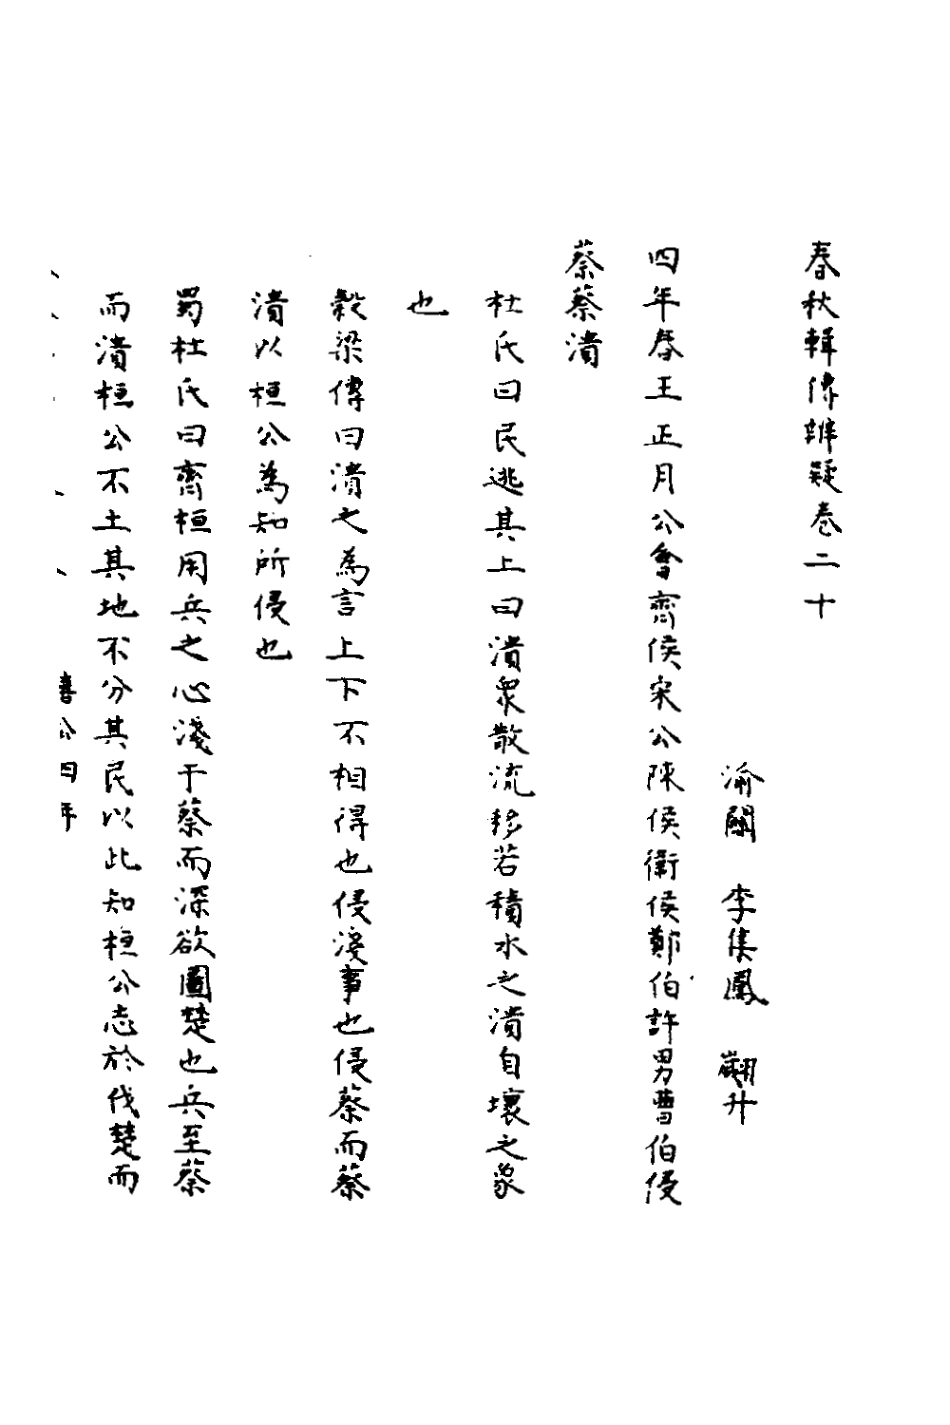 春秋輯傳辨疑卷二十
渝關　李集鳳　翽升
四年春王正月公會齊侯宋公陳侯衞侯鄭伯許男曹伯侵
蔡蔡潰
杜氏曰民逃其上曰潰衆散流移若積水之潰自壞之象
也
穀梁傳曰潰之為言上下不相得也侵淺事也侵蔡而蔡
潰以桓公為知所侵也
蜀杜氏曰齊桓用兵之心淺于蔡而深欲圖楚也兵至蔡
而潰桓公不土其地不分其民以此知桓公志於伐楚而
公四年